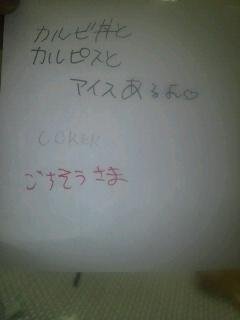 カルビ丼と
カルピスと
アイスあるよ♡
ごちそうさま